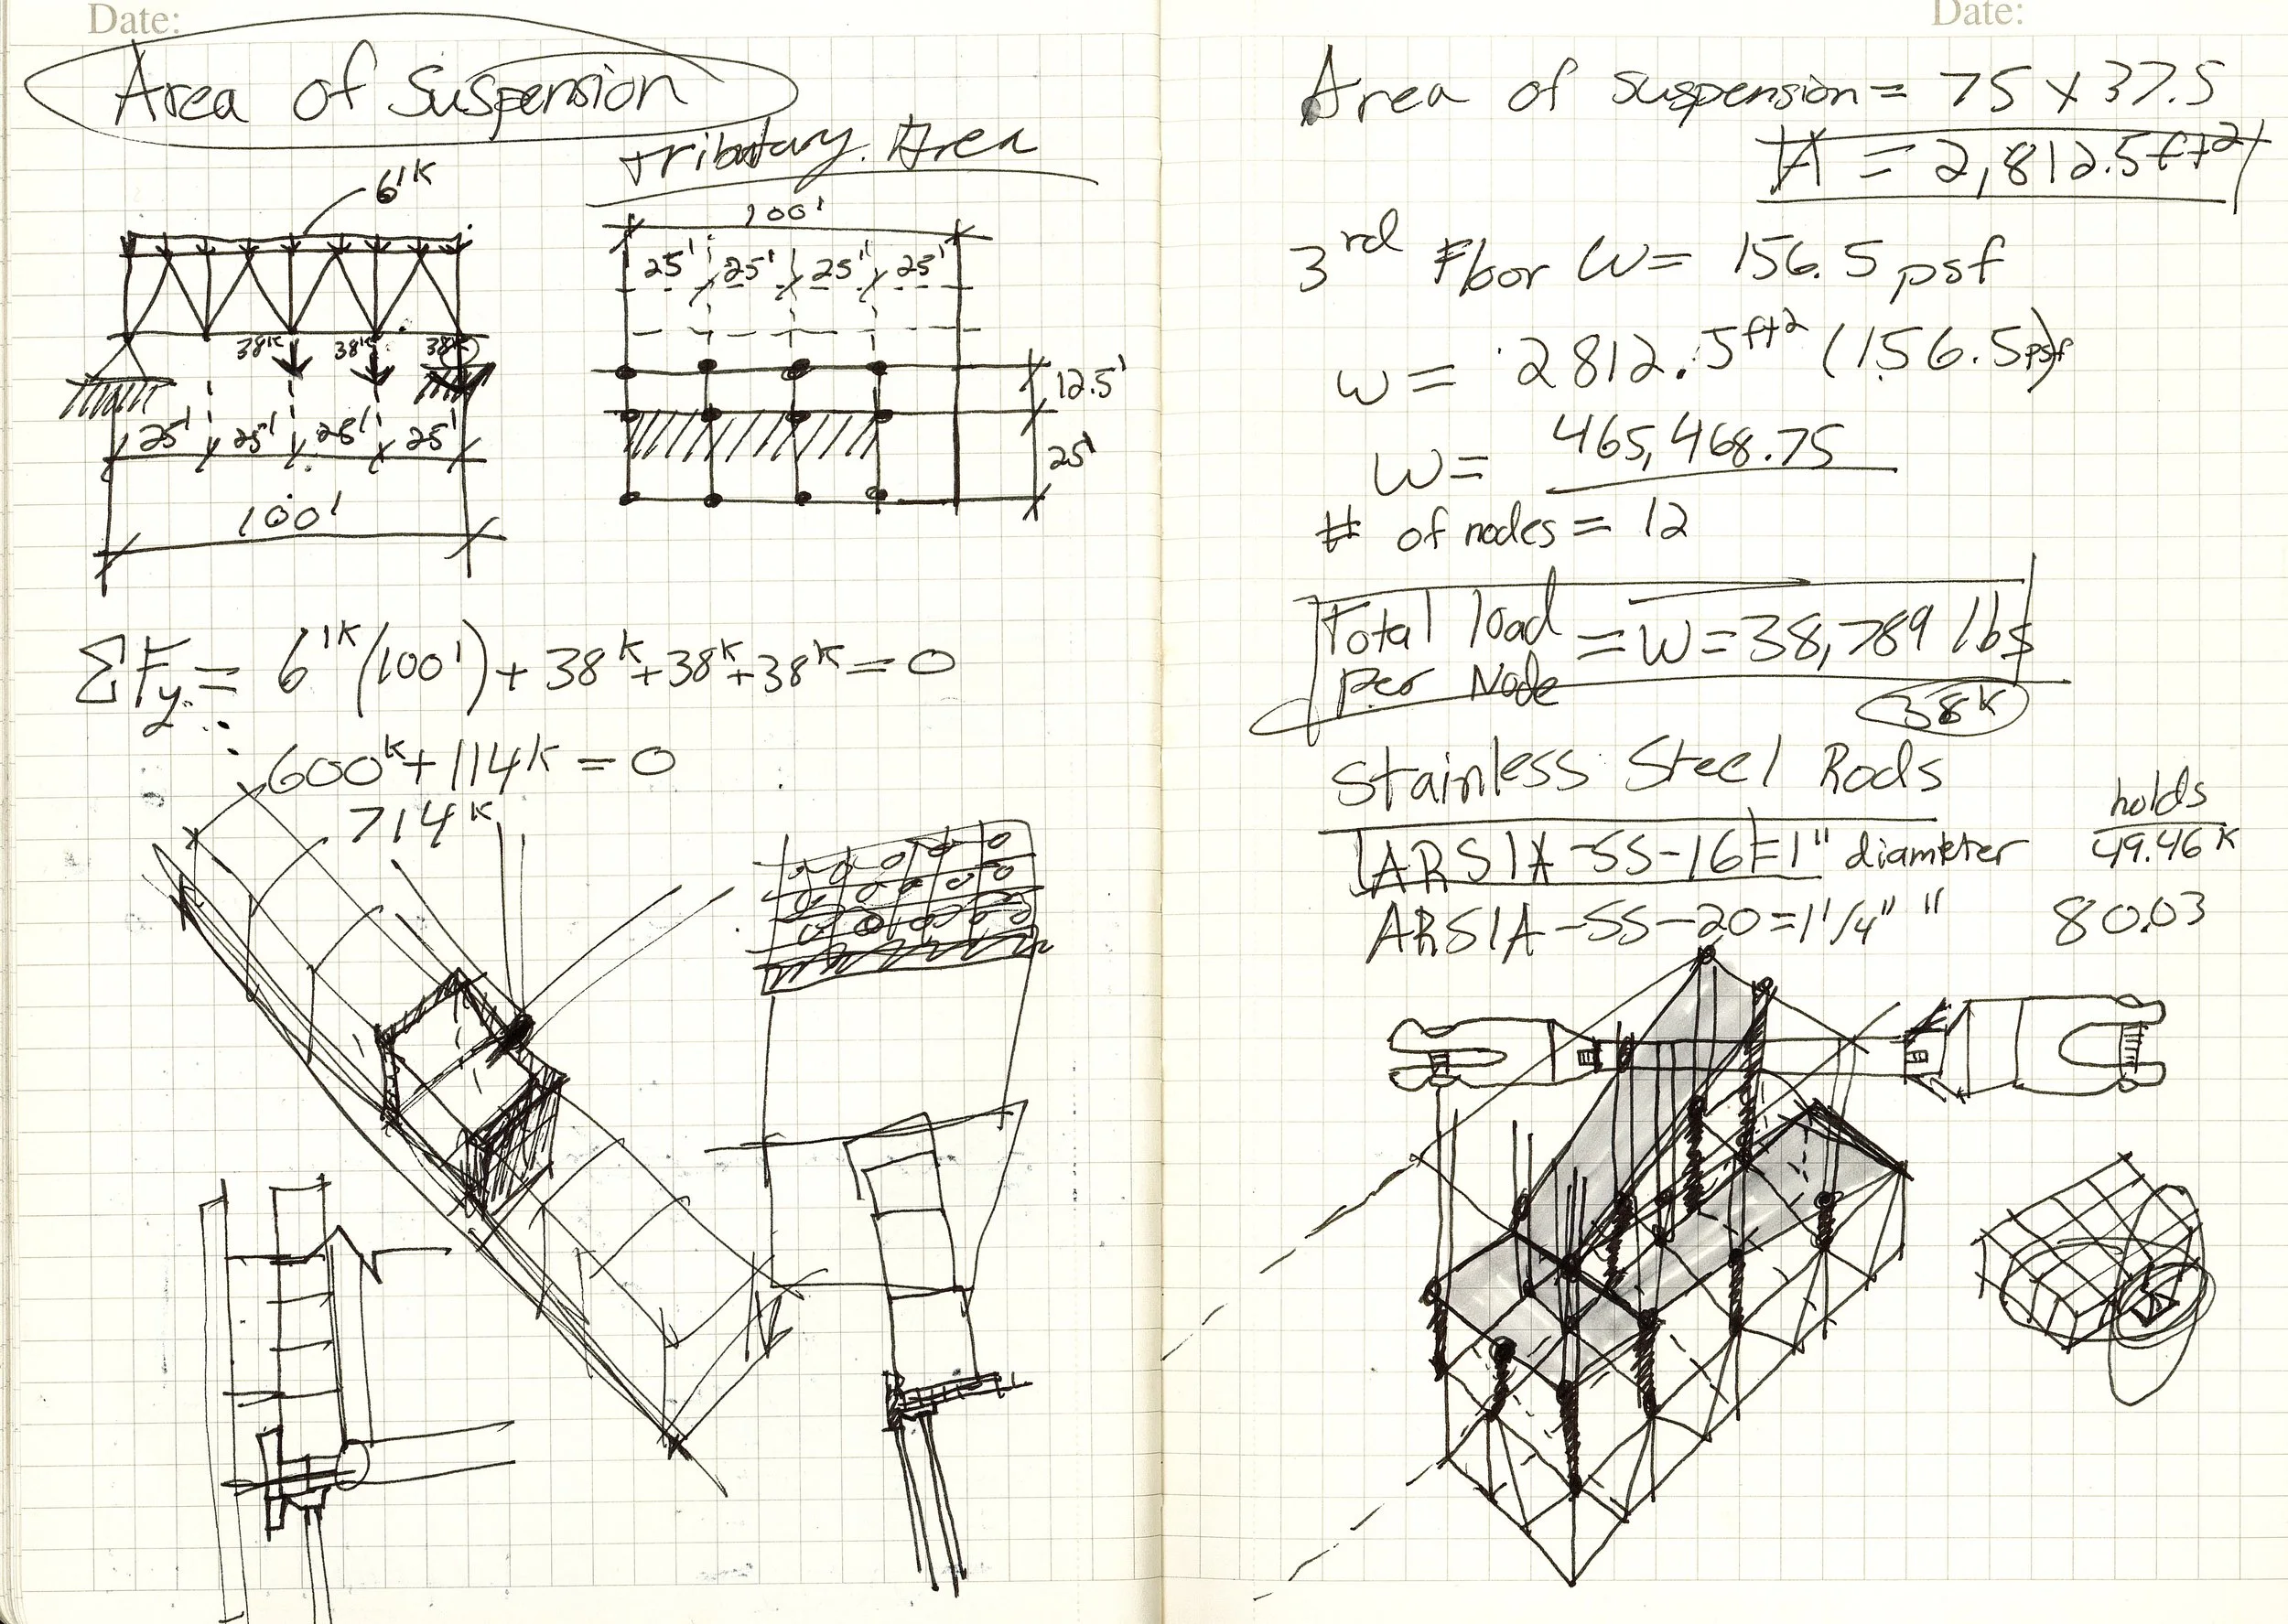 Date:
Area of Suspension
Tributary Area
6'K
100'
25' 25' 25' 25'
38K 38K 38K
12.5'
25' 25' 25' 25'
25'
100'
ΣFy = 6'K(100') + 38K + 38K + 38K = 0
600K + 114K = 0
714K
Date:
Area of suspension = 75 x 37.5
A = 2,812.5ft²
3rd Floor W = 156.5 psf
w = 2812.5ft² (156.5psf)
w = 465,468.75
# of nodes = 12
Total load per Node = W = 38,789 lbs
38K
Stainless Steel Rods
holds
ARS1A-SS-16=1" diameter 49.46K
ARS1A-SS-20=1 1/4" " 80.03